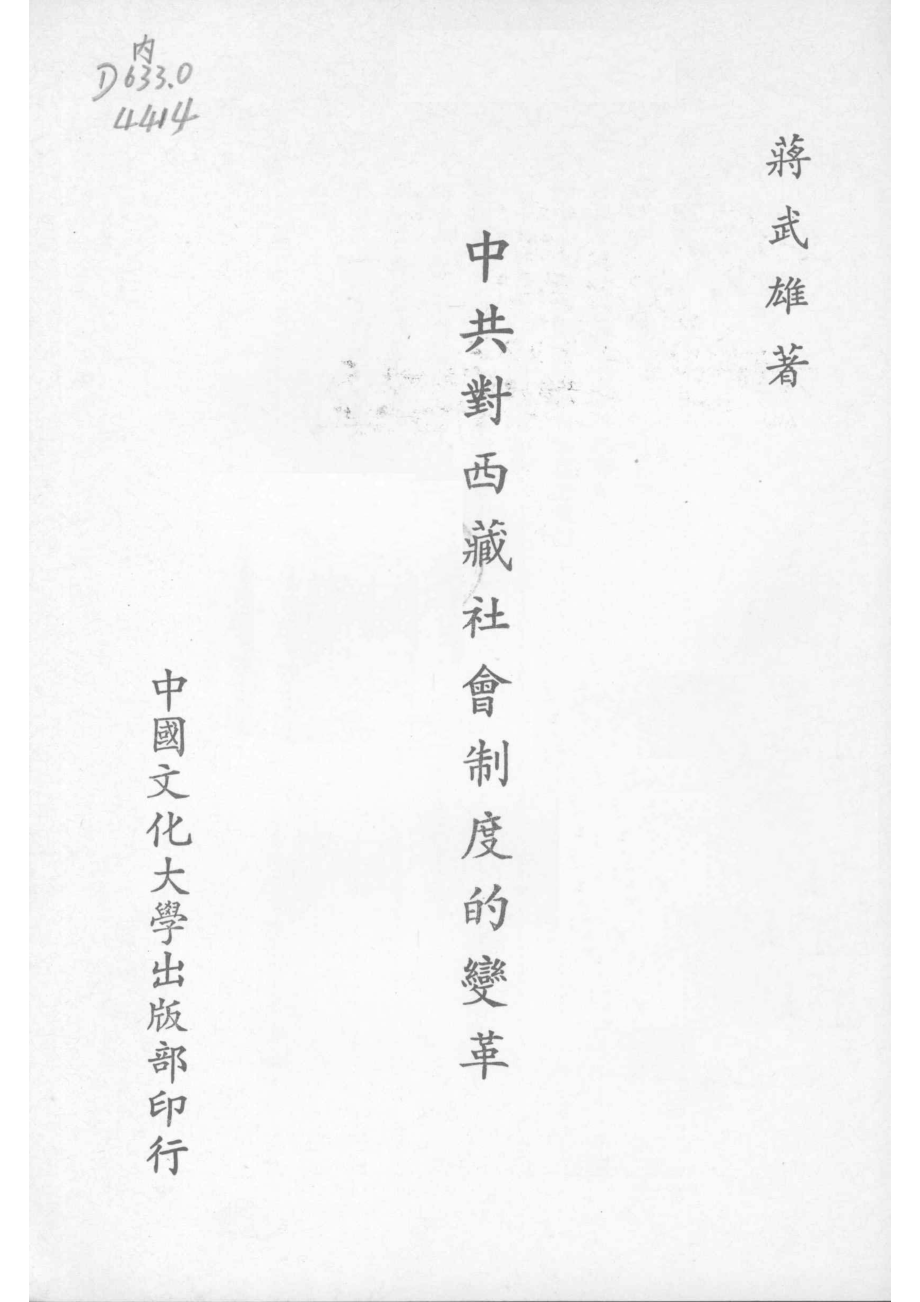 内
D633.0
4414
蔣武雄著
中共對西藏社會制度的變革
中國文化大學出版部印行